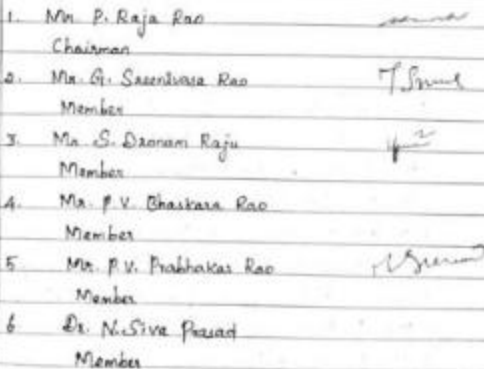 1. Mr. P. Raja Rao
Chairman
2. Mr. G. Sreenivasa Rao
Member
3. Mr. S. Dronam Raju
Member
4. Mr. P. V. Bhaskara Rao
Member
5 Mr. P. V. Prabhakar Rao
Member
6 Dr. N. Siva Prasad
Member